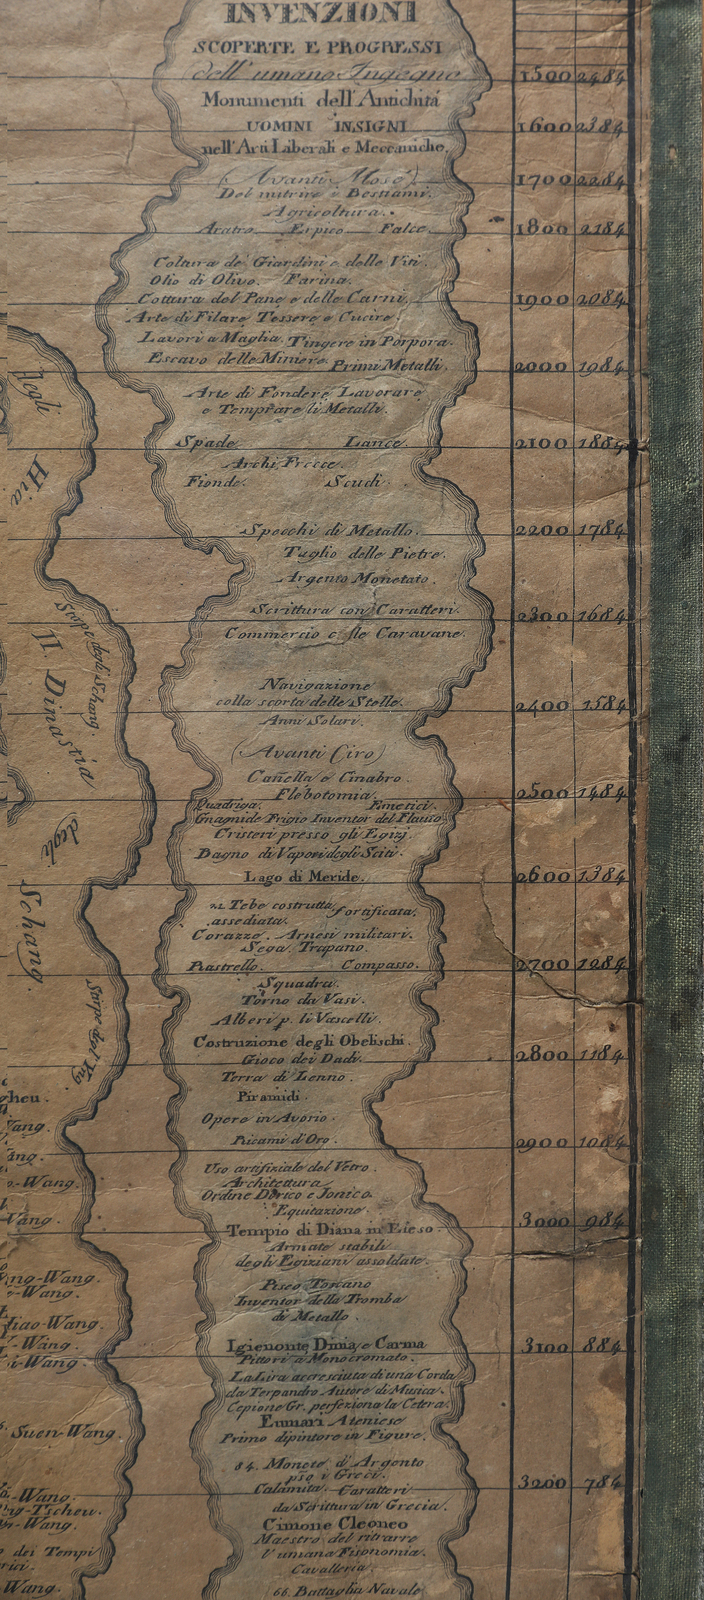 INVENZIONI
SCOPERTE E PROGRESSI
dell'umano Ingegno
Monumenti dell'Antichitá
UOMINI INSIGNI
nell'Arti Liberali e Meccaniche.
(Avanti Mosé)
Del nutrire i Bestiami.
Agricoltura.
Aratro Erpico Falce.
Coltura de' Giardini e delle Viti.
Olio di Olivo. Farina.
Cottura del Pane e delle Carni.
Arte di Filare Tessere e Cucire.
Lavori a Maglia. Tingere in Porpora.
Escavo delle Miniere. Primi Metalli.
Arte di Fondere Lavorare
e Temprare li Metalli.
Spade Lance.
Archi Frecce.
Fionde. Scudi.
Specchi di Metallo.
Taglio delle Pietre.
Argento Monetato.
Scrittura con Caratteri.
Commercio e le Caravane.
Navigazione
colla scorta delle Stelle.
Anni Solari.
(Avanti Ciro)
Canella e Cinabro.
Flebotomia.
Quadriga. Emetici.
Gnagnide Frigio Inventor del Flauto
Cristeri presso gli Egizj.
Bagno di Vapori degli Sciti.
Lago di Meride.
Tebe costrutta fortificata,
assediata.
Corazze. Arnesi militari.
Sega. Trapano.
Piastrello. Compasso.
Squadra.
Torno da Vasi.
Alberi p. li Vascelli.
Costruzione degli Obelischi.
Gioco dei Dadi.
Terra di Lenno.
Piramidi.
Opere in Avorio.
Ricami d'Oro.
Uso artifiziale del Vetro.
Architettura
Ordine Dorico e Jonico.
Equitazione.
Tempio di Diana in Efeso.
Armate stabili
degli Egiziani assoldate.
Piseo Toscano
Inventor della Tromba
di Metallo.
Igienonte Dinia e Carma
Pittori a Monocromato.
La Lira accresciuta di una Corda
da Terpandro Autore di Musica.
Cepione Gr. perfeziona la Cetera.
Eumari Ateniese
Primo dipintore in Figure.
84. Monete d'Argento
pso i Greci.
Calamita. Caratteri
da Scrittura in Grecia.
Cimone Cleoneo
Maestro del ritrarre
l'umana Fisonomia.
Cavalleria.
66. Battaglia Navale
1500 2484
1600 2384
1700 2284
1800 2184
1900 2084
2000 1984
2100 1884
2200 1784
2300 1684
2400 1584
2500 1484
2600 1384
2700 1284
2800 1184
2900 1084
3000 984
3100 884
3200 784
degli
Hia
Stirpe degli Schang.
II. Dinastia
degli
Schang.
Stirpe del Yng
Wang.
Wang.
-Wang.
Wang.
-Wang.
-Wang.
Hiao-Wang.
-Wang.
i-Wang.
Suen-Wang.
-Wang.
-Tscheu.
-Wang.
dei Tempi
Wang.